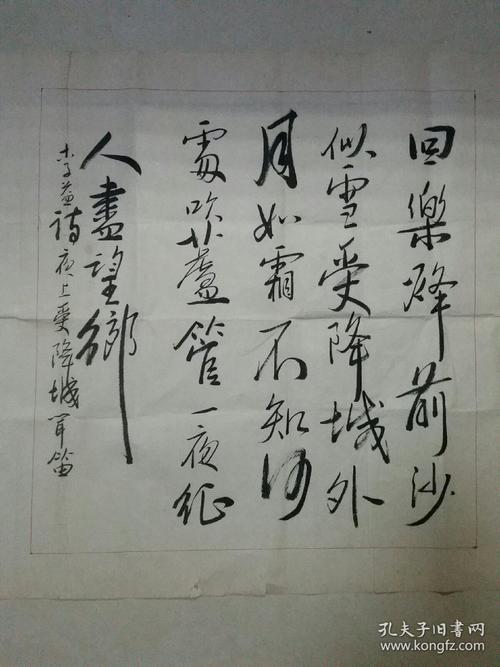 回樂烽前沙
似雪受降城外
月如霜不知何
處吹蘆管一夜征
人盡望鄉
李益诗夜上受降城闻笛
孔夫子旧书网
www.kongfz.com